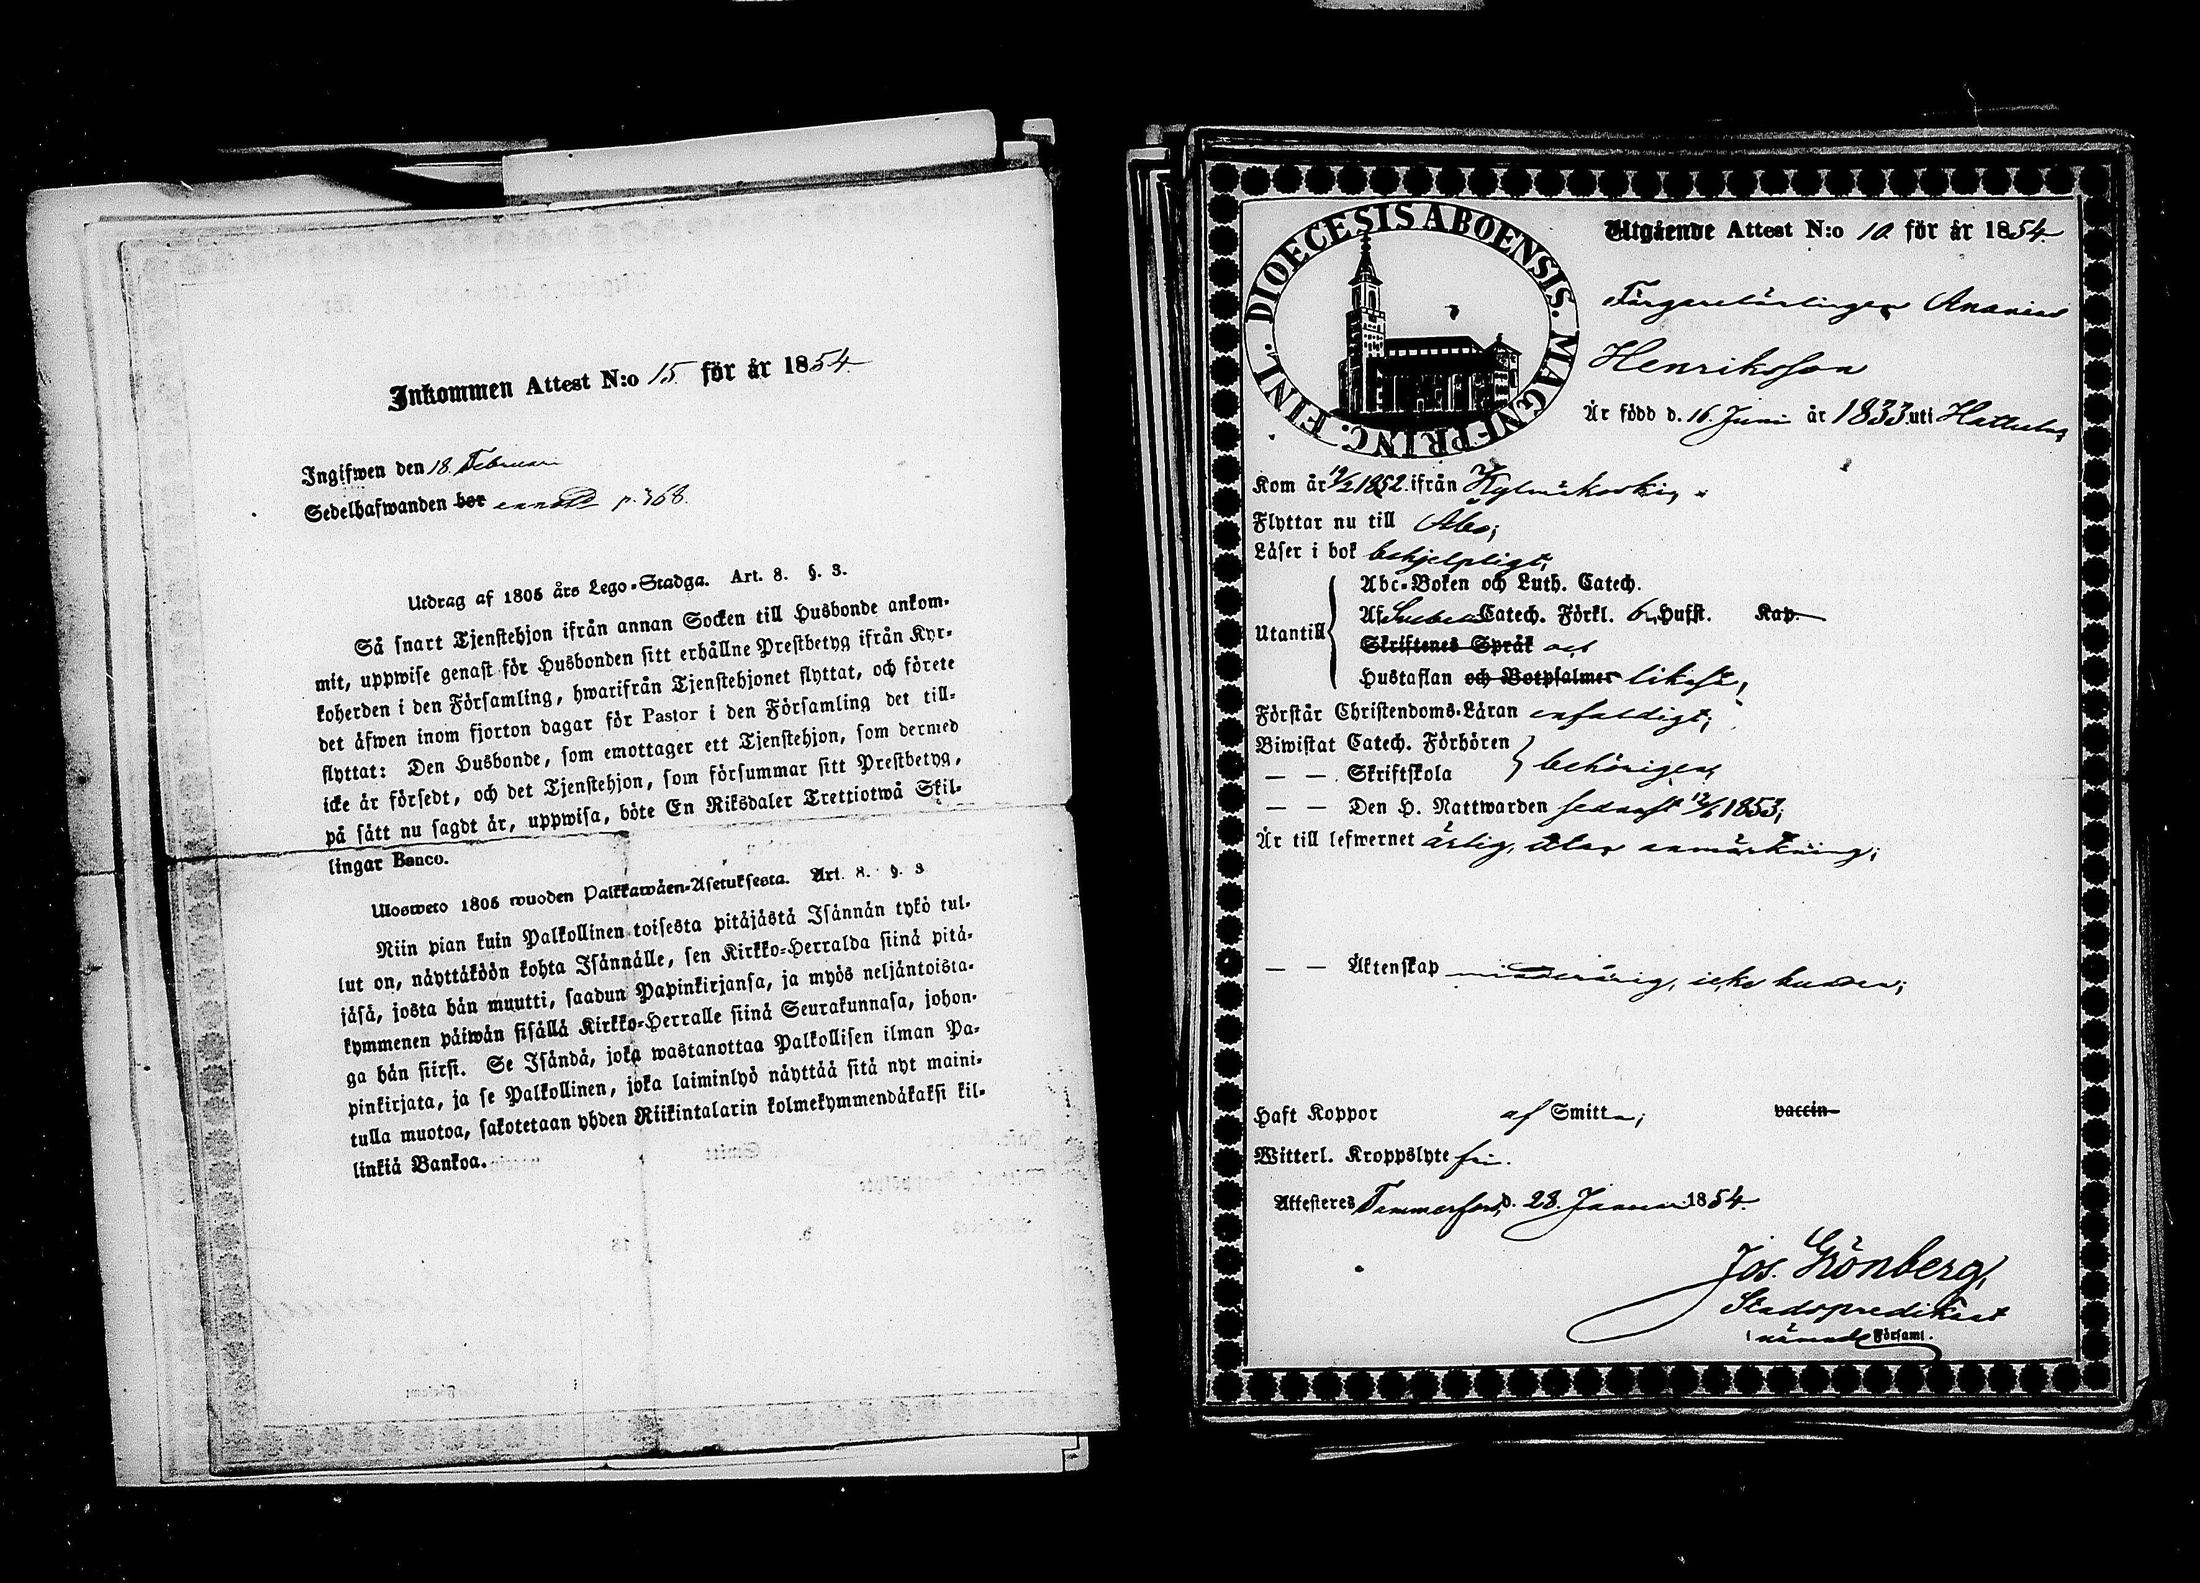 Inkommen Attest N:o 15. för år 1854.
Ingifwen den 18. Februari
Sedelhafwanden bor p. 368.
Utdrag af 1805 års Lego-Stadga. Art. 8. §. 3.
Så snart Tjenstehjon ifrån annan Socken till Husbonde ankom-
mit, uppwise genast för Husbonden sitt erhållne Prestbetyg ifrån Kyr-
koherden i den Församling, hwarifrån Tjenstehjonet flyttat, och förete
det äfwen inom fjorton dagar för Pastor i den Församling det till-
flyttat: Den Husbonde, som emottager ett Tjenstehjon, som dermed
icke är försedt, och det Tjenstehjon, som försummar sitt Prestbetyg,
på sätt nu sagdt är, uppwisa, böte En Riksdaler Trettiotwå Skil-
lingar Banco.
Ulosweto 1805 wuoden Palkkawäen-Asetuksesta. Art. 8. §. 3
Niin pian kuin Palkollinen toisesta pitäjästä Isännän tykö tul-
lut on, näyttäköön kohta Isännälle, sen Kirkko-Herralda siinä pitä-
jäsä, josta hän muutti, saadun Papinkirjansa, ja myös neljäntoista-
kymmenen päiwän sisällä Kirkko-Herralle siinä Seurakunnasa, johon-
ga hän siirsi. Se Isändä, joka wastanottaa Palkollisen ilman Pa-
pinkirjata, ja se Palkollinen, joka laiminlyö näyttää sitä nyt maini-
tulla muotoa, sakotetaan yhden Riikintalarin kolmekymmendäkaksi kil-
linkiä Bankoa.
DIOECESIS ABOENSIS. MAGNI PRINC. FINL.
Utgående Attest N:o 10. för år 1854.
Färgarelärlingen Ananias
Henriksson
Är född d. 16. Juni år 1833 uti Hattula,
Kom år 19/2 1852. ifrån Kylmäkoski,
Flyttar nu till Åbo;
Läser i bok behjelpligt,
Utantill
Abc-Boken och Luth. Catech.
Af Svebelii Catech. Förkl. 6. Hufst. Kap.
Skriftenes Språk och
Hustaflan och Botpsalmer likaså,
Förstår Christendoms-Läran enfaldigt;
Biwistat Catech. Förhören
— — Skriftskola behörigen,
— — Den H. Nattwarden sednast 12/6 1853;
Är till lefwernet ärlig, utan anmärkning;
— — Äktenskap minderårig, icke bunden;
Haft Koppor af Smitta; vaccin
Witterl. Kroppslyte fri.
Attesteres Tammerfors, d. 28. Januari 1854.
Jos. Grönberg,
Stadspredikant
i nämnde Församl.